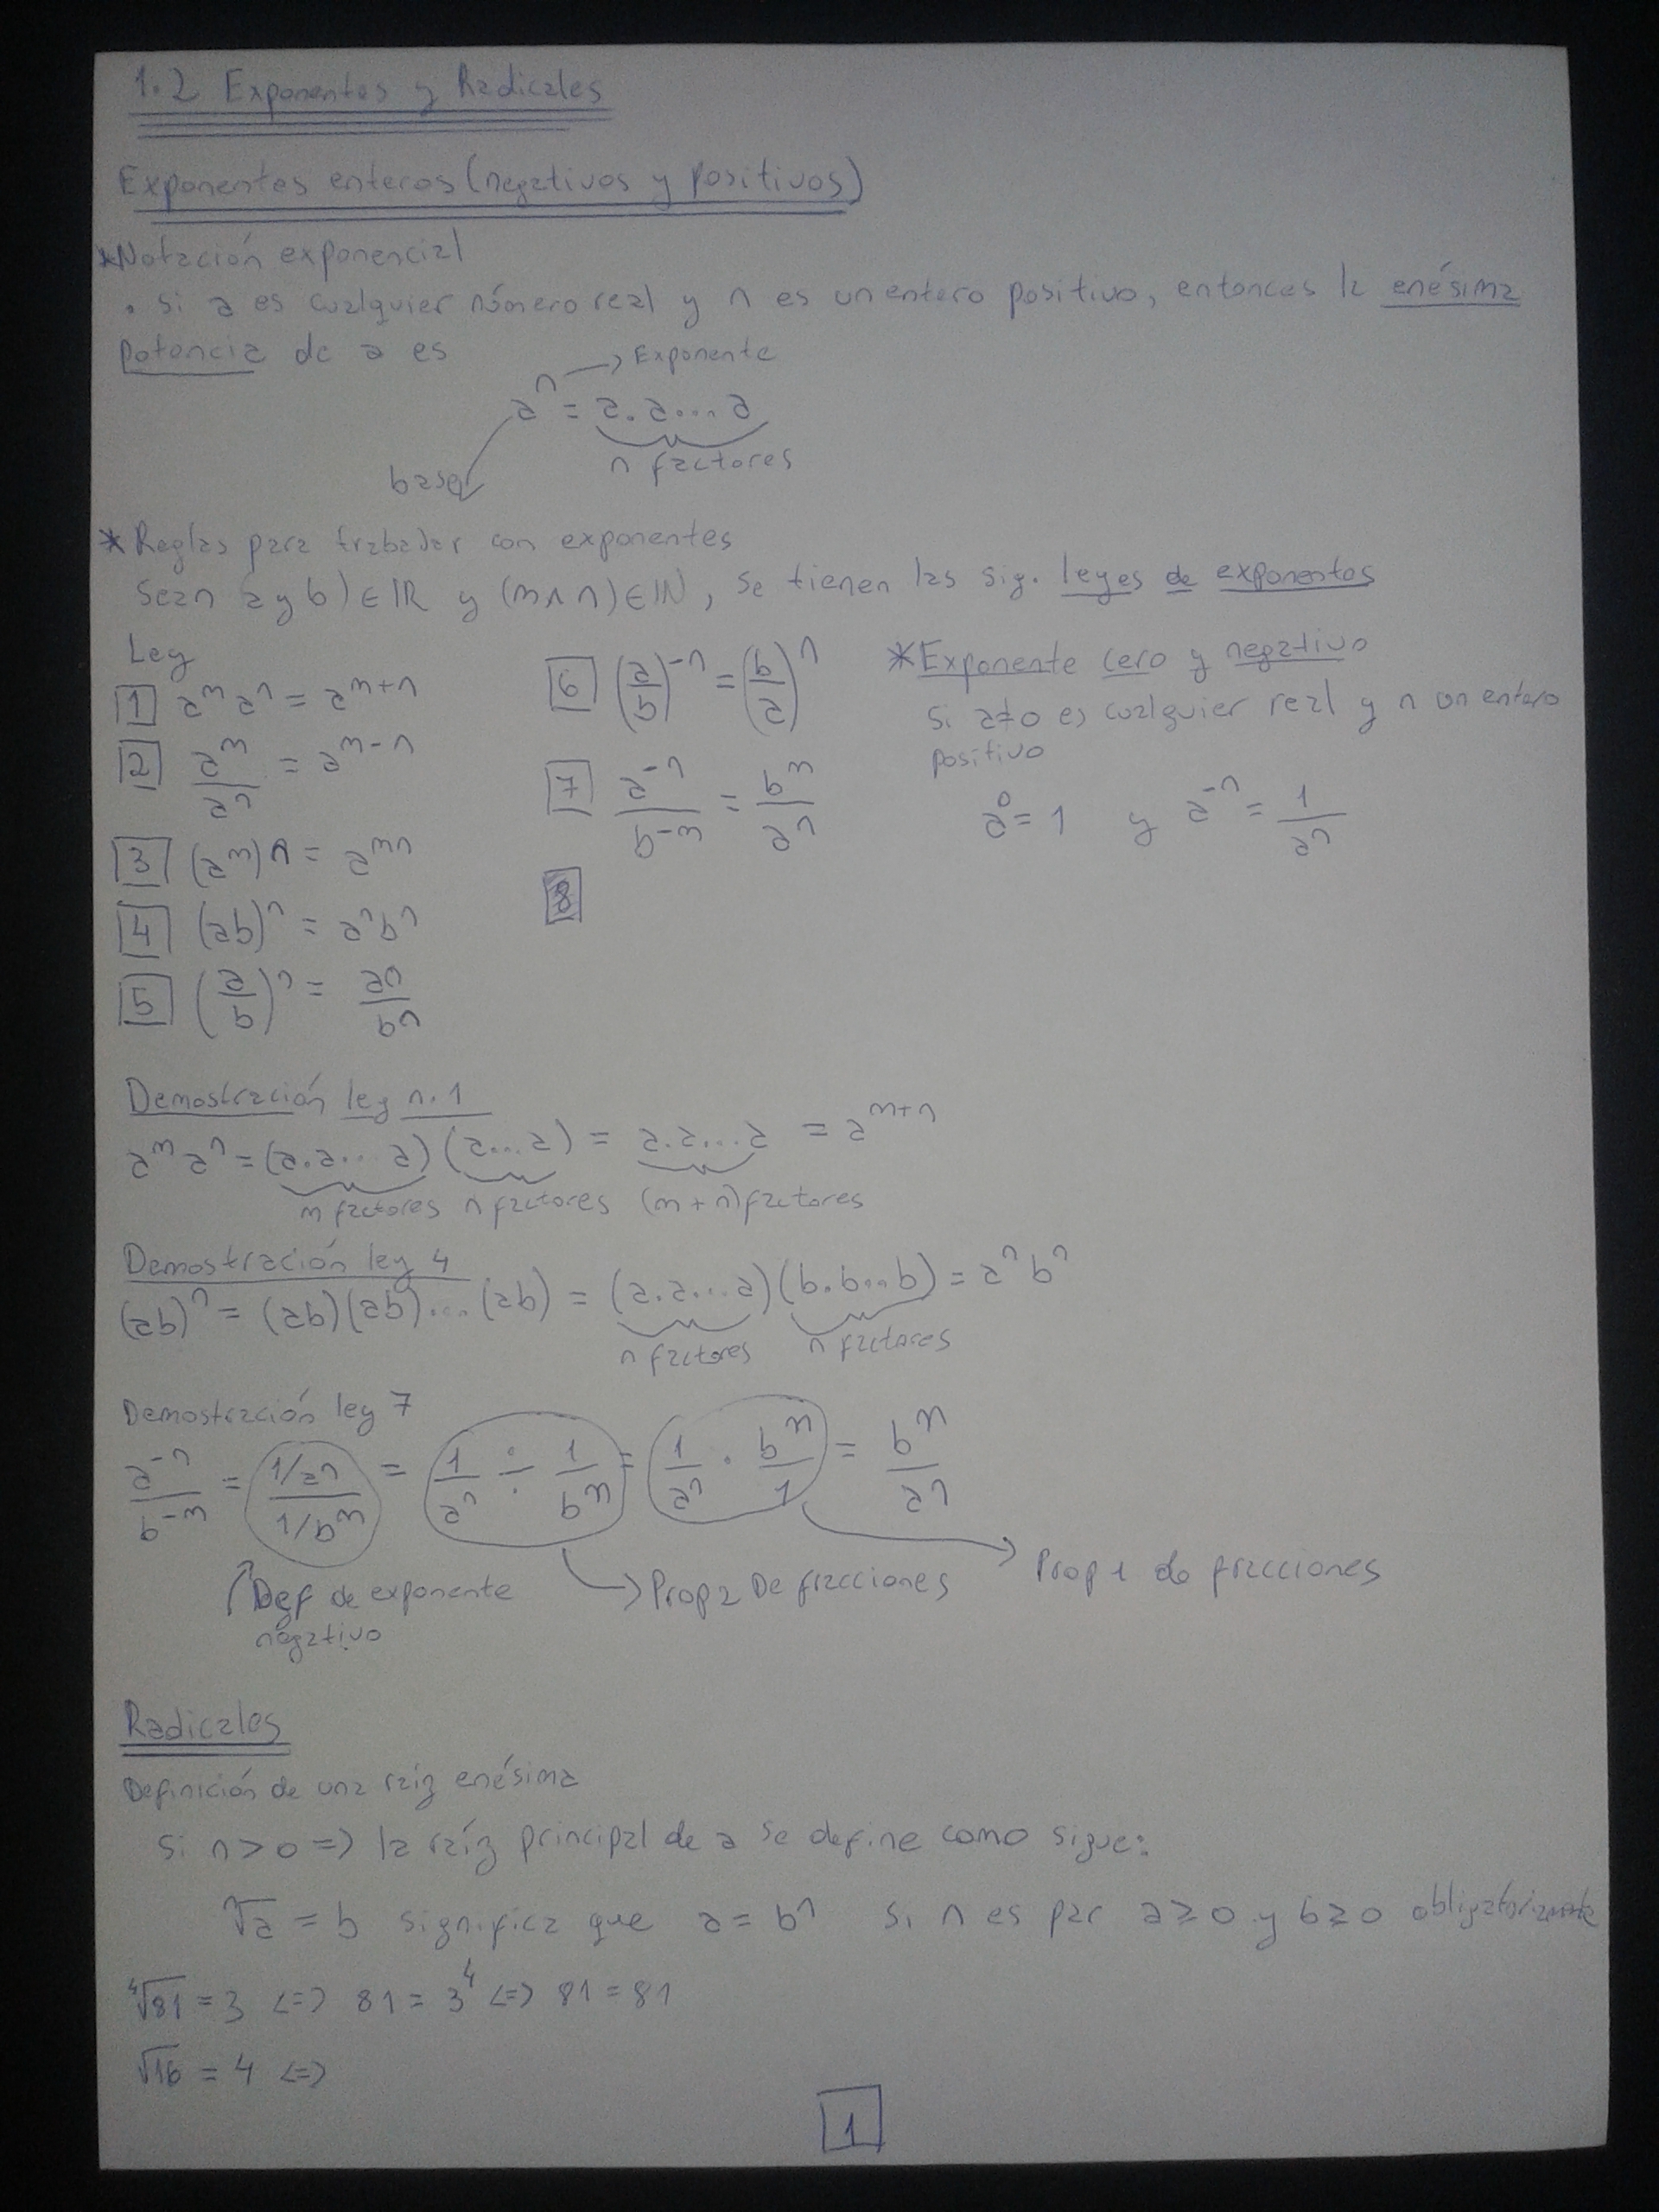 1.2 Exponentes y Radicales
Exponentes enteros (negativos y positivos)
*Notación exponencial
• Si a es cualquier número real y n es un entero positivo, entonces la enésima
potencia de a es
→ Exponente
aⁿ = a.a...a
n factores
base
* Reglas para trabajar con exponentes
Sean (a y b) ∈ IR y (m ∧ n) ∈ IN, se tienen las sig. leyes de exponentes
Ley
1 aᵐ aⁿ = aᵐ⁺ⁿ
2 aᵐ/aⁿ = aᵐ⁻ⁿ
3 (aᵐ)ⁿ = aᵐⁿ
4 (ab)ⁿ = aⁿbⁿ
5 (a/b)ⁿ = aⁿ/bⁿ
6 (a/b)⁻ⁿ = (b/a)ⁿ
7 a⁻ⁿ/b⁻ᵐ = bᵐ/aⁿ
8
*Exponente cero y negativo
Si a≠0 es cualquier real y n un entero
positivo
a⁰ = 1 y a⁻ⁿ = 1/aⁿ
Demostración ley n.1
aᵐ aⁿ = (a.a...a)(a...a) = a.a...a = aᵐ⁺ⁿ
m factores n factores (m+n) factores
Demostración ley 4
(ab)ⁿ = (ab)(ab)...(ab) = (a.a...a)(b.b...b) = aⁿbⁿ
n factores n factores
Demostración ley 7
a⁻ⁿ/b⁻ᵐ = (1/aⁿ)/(1/bᵐ) = 1/aⁿ ÷ 1/bᵐ = 1/aⁿ · bᵐ/1 = bᵐ/aⁿ
Def de exponente
negativo
→ Prop 2 De fracciones
→ Prop 1 de fracciones
Radicales
Definición de una raíz enésima
Si n > 0 => la raíz principal de a se define como sigue:
ⁿ√a = b significa que a = bⁿ Si n es par a ≥ 0 y b ≥ 0 obligatoriamente
⁴√81 = 3 <=> 81 = 3⁴ <=> 81 = 81
√16 = 4 <=>
1